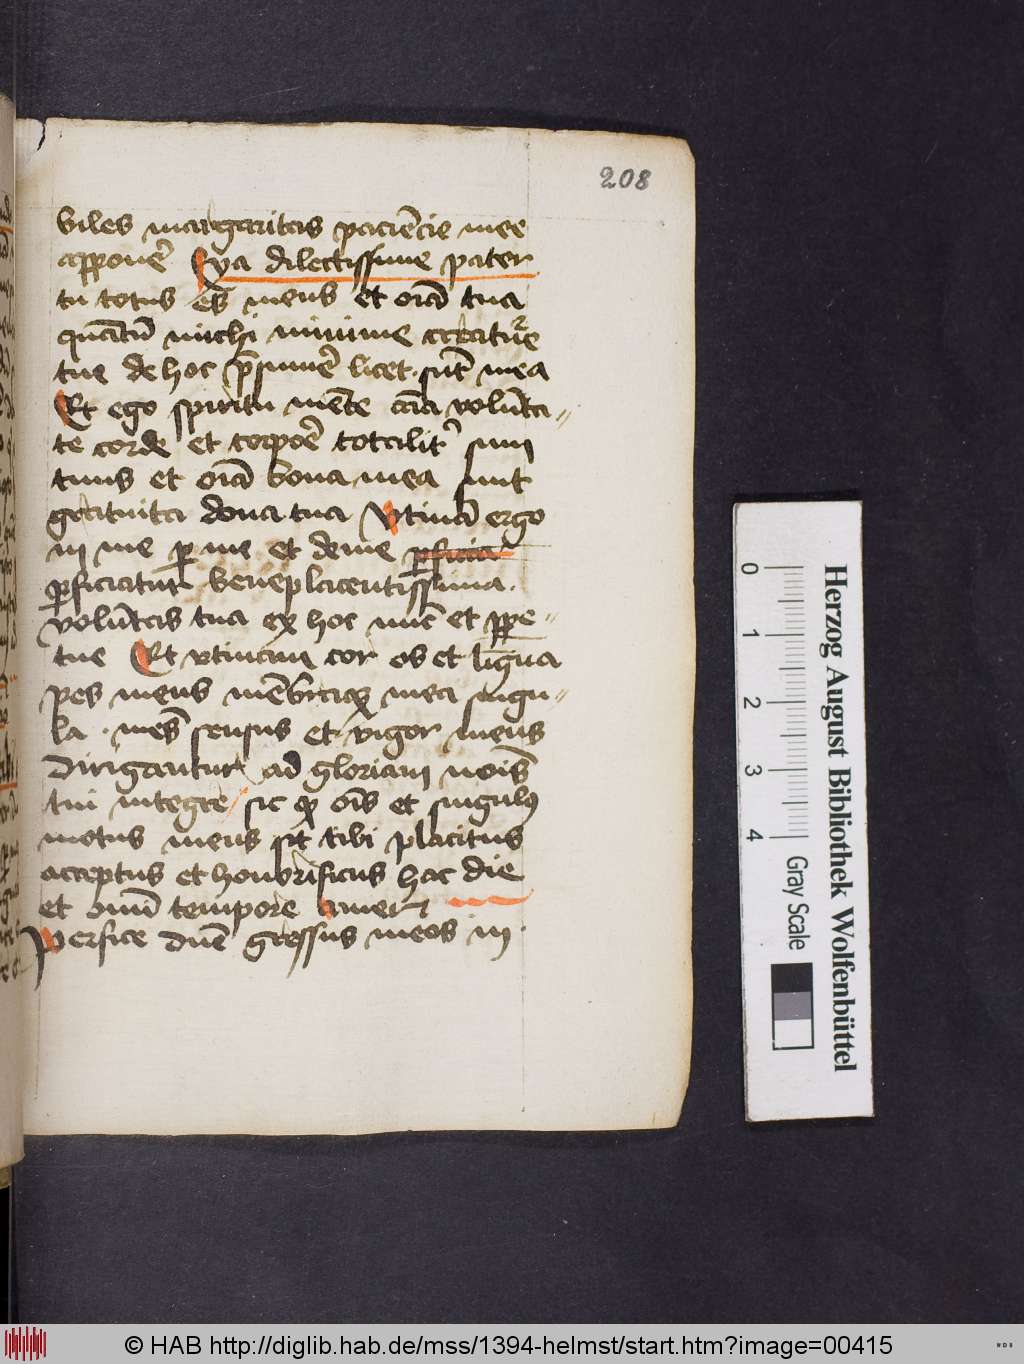 208
viles margaritas paciēcie mee
apponē Eya dilectissime pater
tu totus es meus et oīa tua
quātū michi minime creature
tue de hoc p̄sumē licet sūt mea
Et ego spiritu mēte aīa volūta=
te corde et corpoē totalit' sum
tuus et oīa bona mea sunt
gratuita dona tua Vtinā ergo
in me ꝑ me et de me
ꝑficiatur beneplacentissima
volūtas tua ex hoc nūc et ꝑpe=
tue Et vtinam cor os et lingua
pes meus mēbraqꝫ mea singu=
la mēs sensus et vigor meus
dirigantur ad gloriam nōis
tui integre sic qꝫ oīs et singulus
motus meus sit tibi placitus
acceptus et honorificus hac die
et omī tempore amen
Perfice dn̄e gressus meos in
0 1 2 3 4
Gray Scale
Herzog August Bibliothek Wolfenbüttel
© HAB http://diglib.hab.de/mss/1394-helmst/start.htm?image=00415